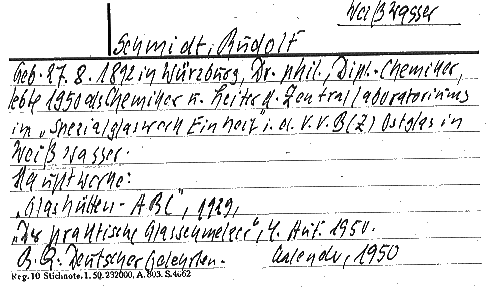 Weißwasser
Schmidt, Rudolf
Geb. 27. 8. 1892 in Würzburg, Dr. phil., Dipl.-Chemiker,
lebte 1950 als Chemiker u. Leiter d. Zentrallaboratoriums
in „Spezialglaswerk Einheit" i. d. V.V.B.(Z) Ostglas in
Weißwasser.
Hauptwerke:
„Glashütten-ABC", 1929,
„Der praktische Glasschmelzer", 4. Auf. 1950.
Deutscher Gelehrten. Kalender, 1950
Reg. 10 Stichnote. 1. 50. 232000, A. 803. S. 4062